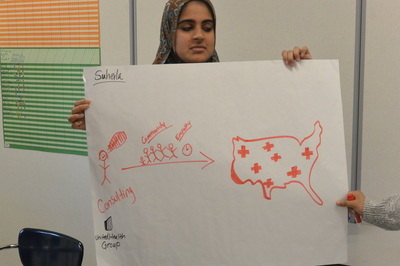 Suhaik
Community
Consulting
UnitedHealth
Group